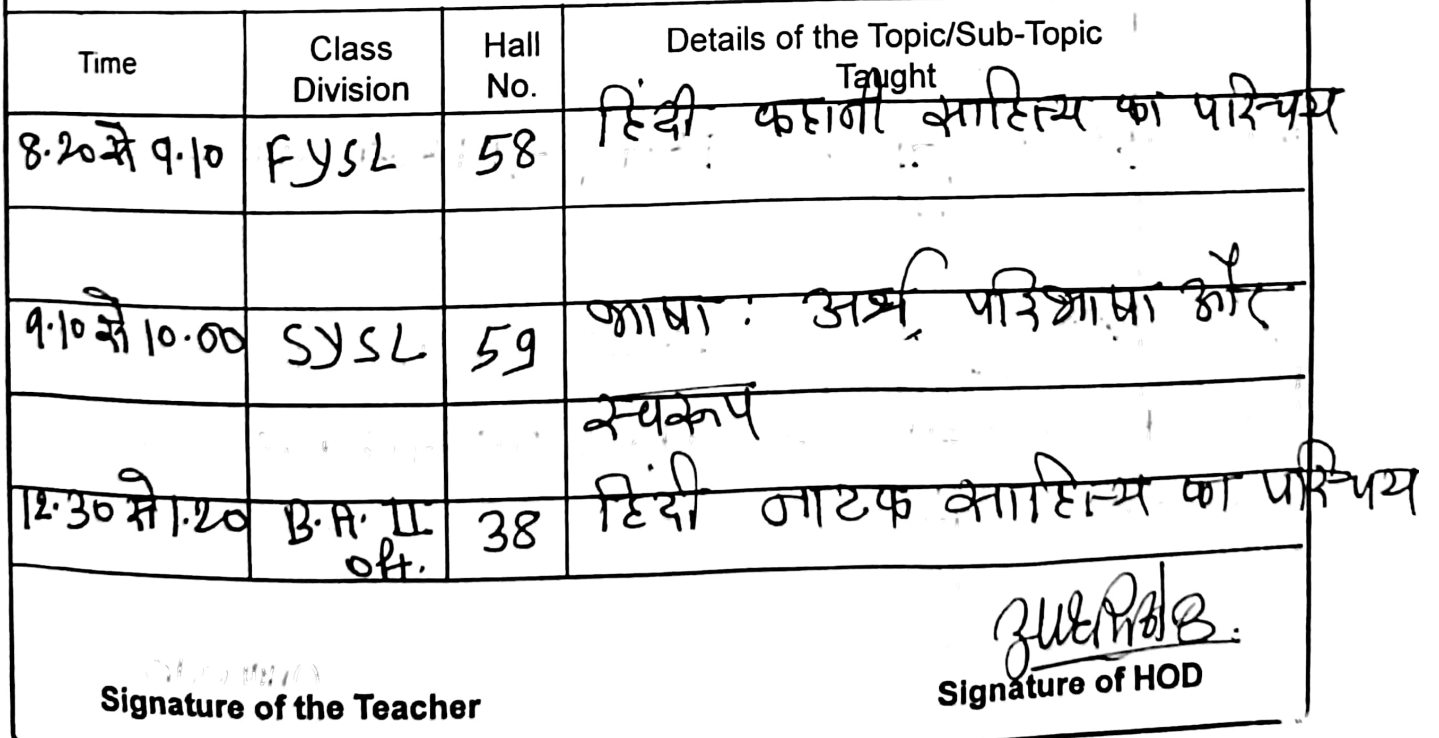 Time Class Division Hall No. Details of the Topic/Sub-Topic Taught
8.20 से 9.10 FYSL 58 हिंदी कहानी साहित्य का परिचय
9.10 से 10.00 SYSL 59 भाषा : अर्थ, परिभाषा और
स्वरूप
12.30 से 1.20 B.A. II 38 हिंदी नाटक साहित्य का परिचय
opt.
Signature of the Teacher Signature of HOD